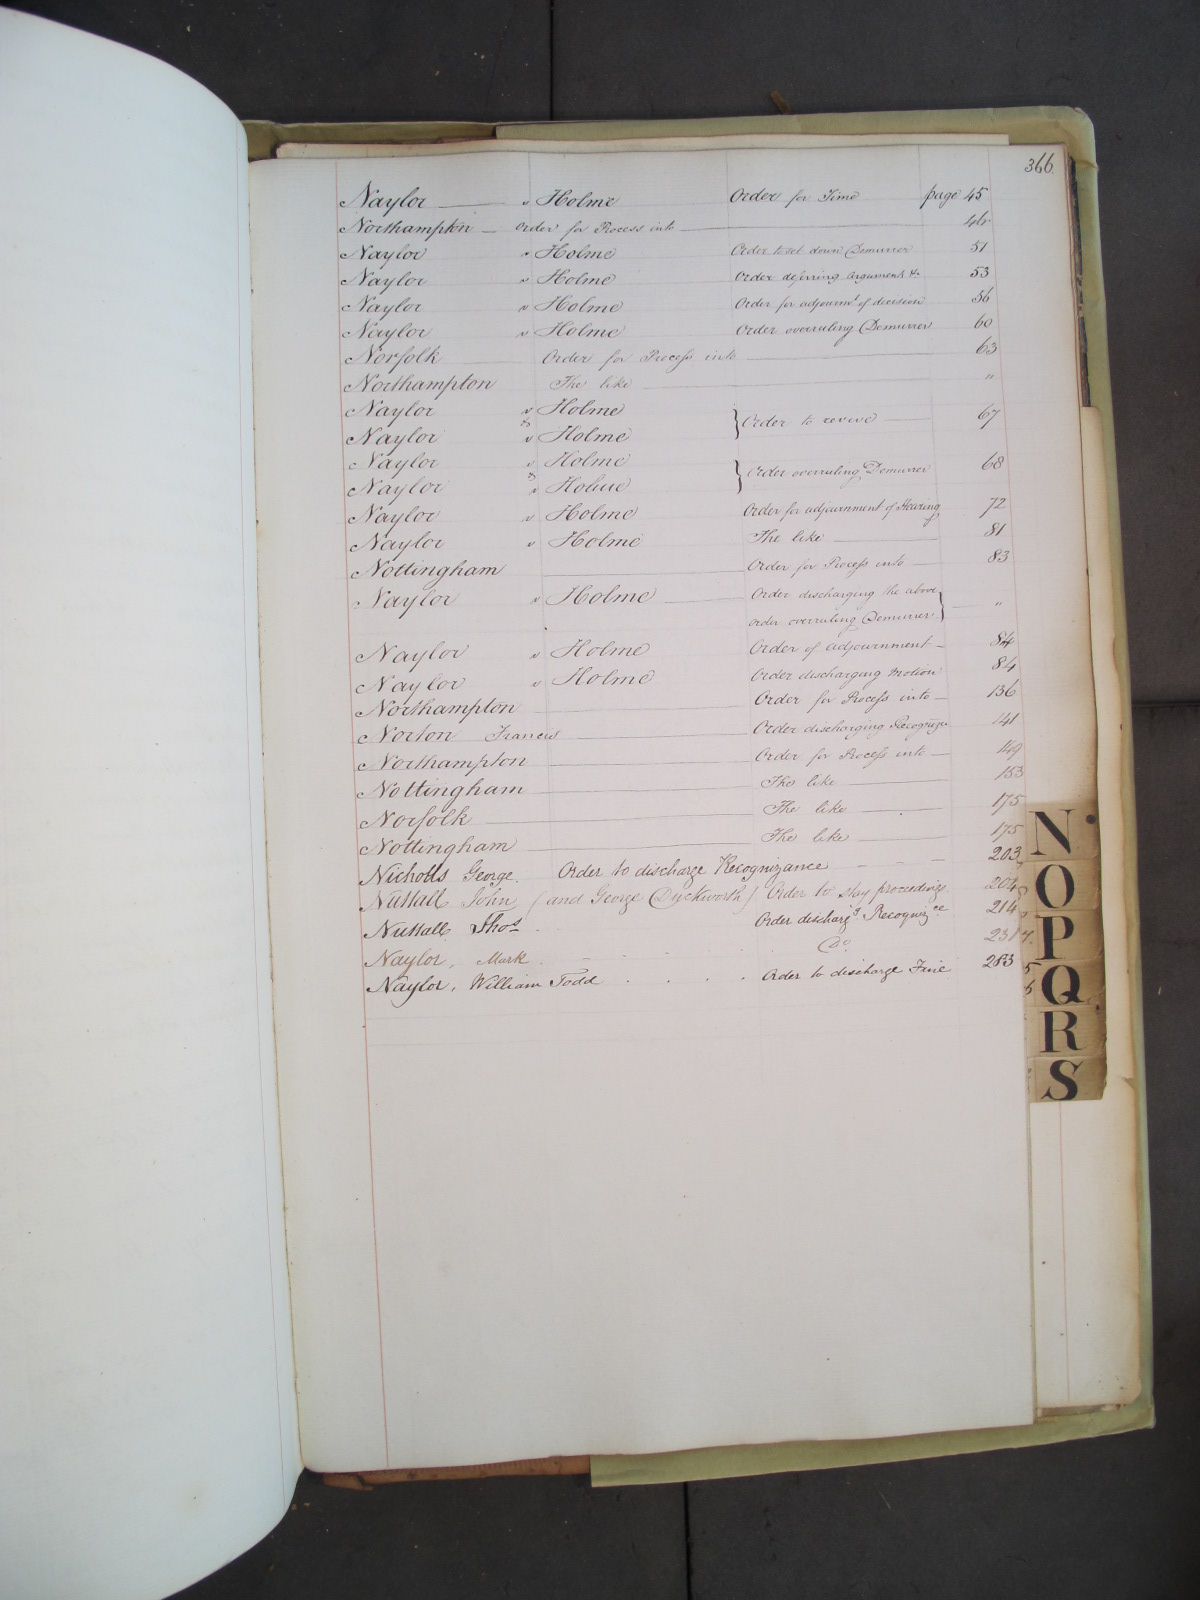 366.
Naylor v Holme Order for Time page 45
Northampton Order for Process into 46
Naylor v Holme Order to set down Demurrer 51
Naylor v Holme Order deferring argument &c 53
Naylor v Holme Order for adjournt of decision 56
Naylor v Holme Order overruling Demurrer 60
Norfolk Order for Process into 63
Northampton The like "
Naylor v Holme
& } Order to revive 67
Naylor v Holme
Naylor v Holme
& } Order overruling Demurrer 68
Naylor v Holme
Naylor v Holme Order for adjournment of Hearing 72
Naylor v Holme The like 81
Nottingham Order for Process into 83
Naylor v Holme Order discharging the above
order overruling Demurrer } "
Naylor v Holme Order of adjournment 84
Naylor v Holme Order discharging Motion 84
Northampton Order for Process into 136
Norton Francis Order discharging Recognize 141
Northampton Order for Process into 149
Nottingham The like 153
Norfolk The like 175
Nottingham The like 175
Nicholls George. Order to discharge Recognizance 203
Nuttall John (and George Duckworth) Order to stay proceedings 204
Nuttall Thos. Order dischargg Recognizce 214
Naylor, Mark Do. 231
Naylor, William Todd Order to discharge Fine 283
N
O
P
Q
R
S